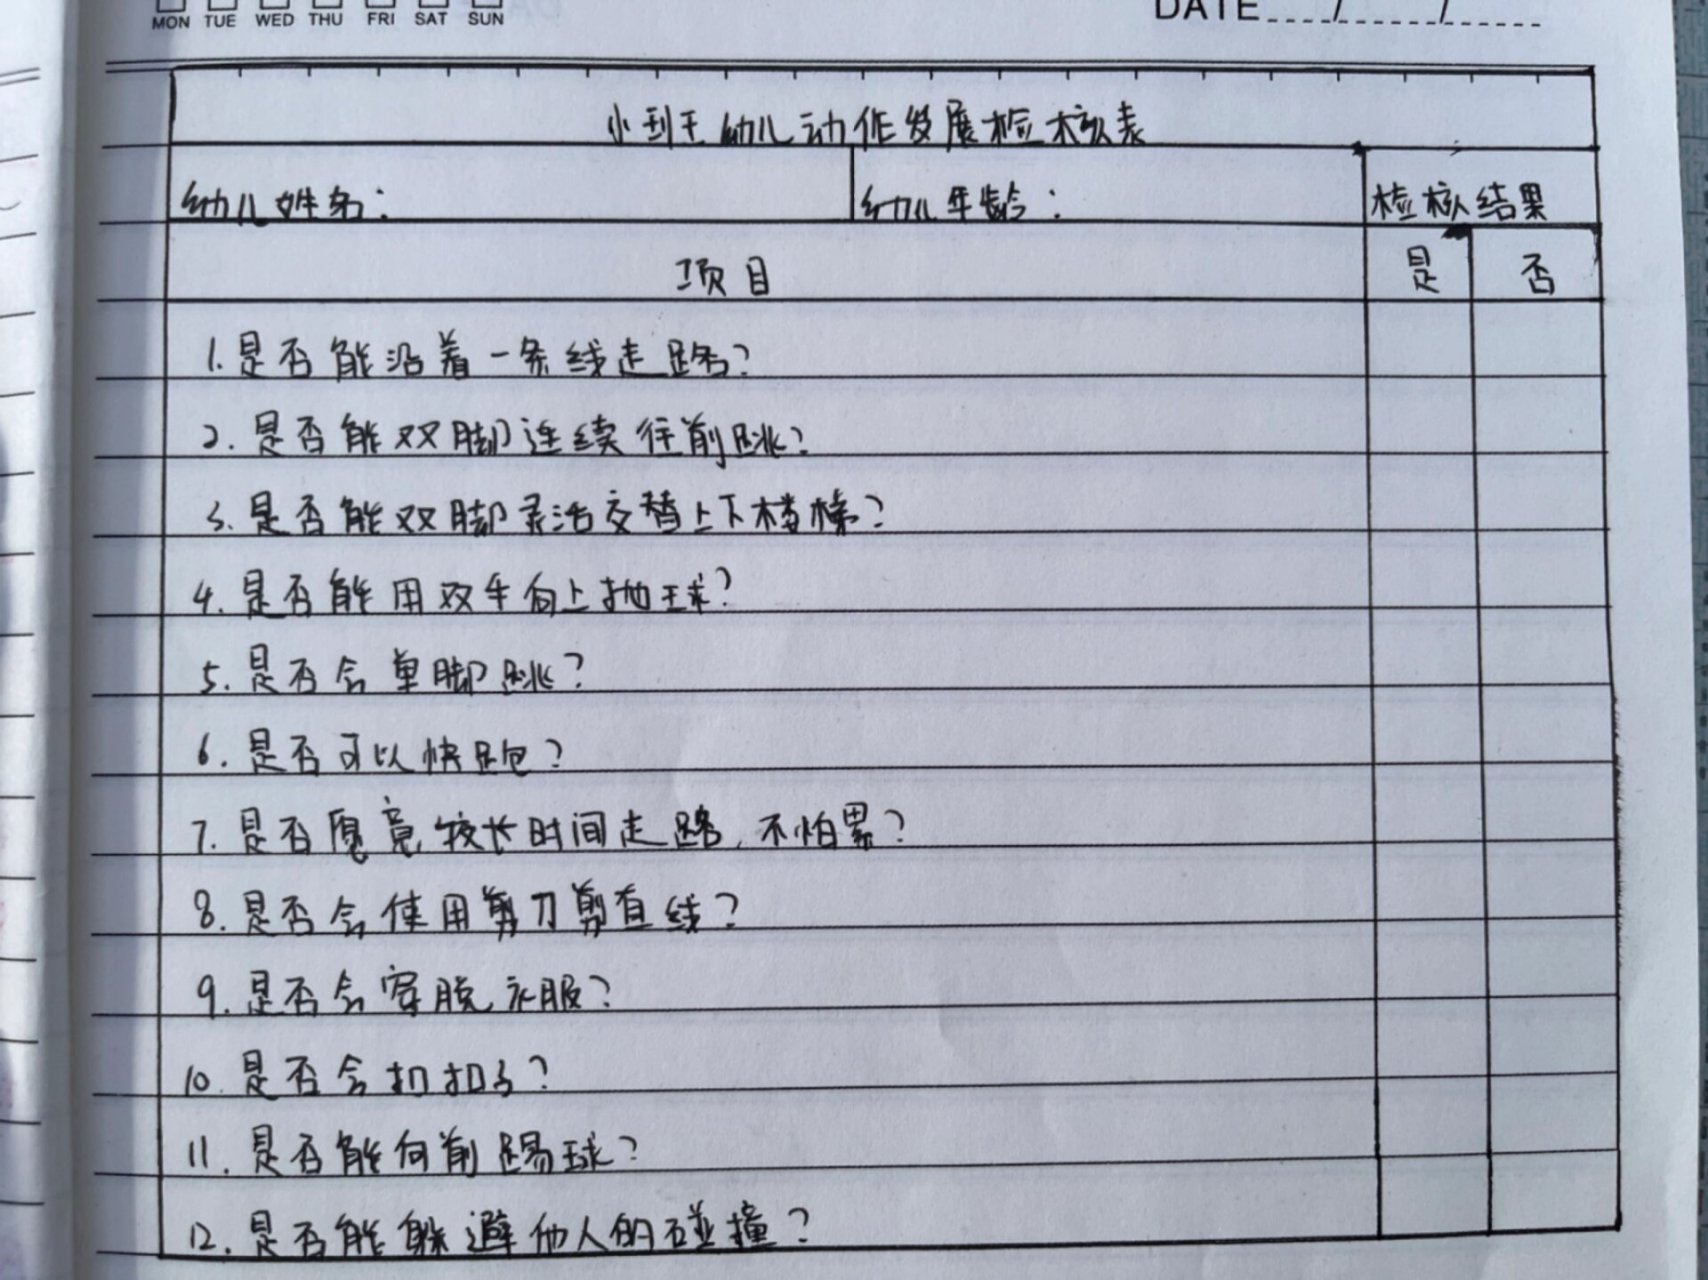 MON TUE WED THU FRI SAT SUN
DATE / /
小班幼儿动作发展检核表
幼儿姓名：
幼儿年龄：
检核结果
项目
是
否
1.是否能沿着一条线走路？
2.是否能双脚连续往前跳？
3.是否能双脚灵活交替上下楼梯？
4.是否能用双手向上抛球？
5.是否会单脚跳？
6.是否可以快跑？
7.是否愿意较长时间走路，不怕累？
8.是否会使用剪刀剪直线？
9.是否会穿脱衣服？
10.是否会扣扣子？
11.是否能向前踢球？
12.是否能躲避他人的碰撞？